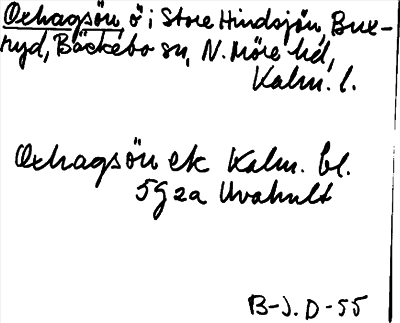 Oxhagsön, ö i Store Hindsjön, Bux-
ryd, Bäckebo sn, N. Möre hd,
Kalm. l.
Oxhagsön ek Kalm. bl.
5g2a Uvahult
B-J. D-55